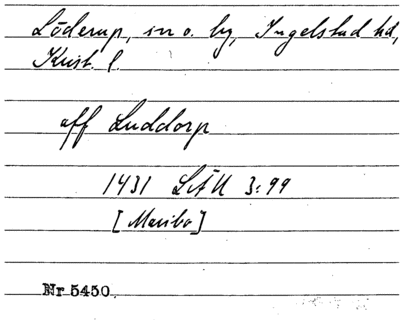 Löderup, sn o. by, Ingelstad hd,
Krist. l.
aff Luddorp
1431 LÄU 3:99
[Maribo]
Nr 5450.